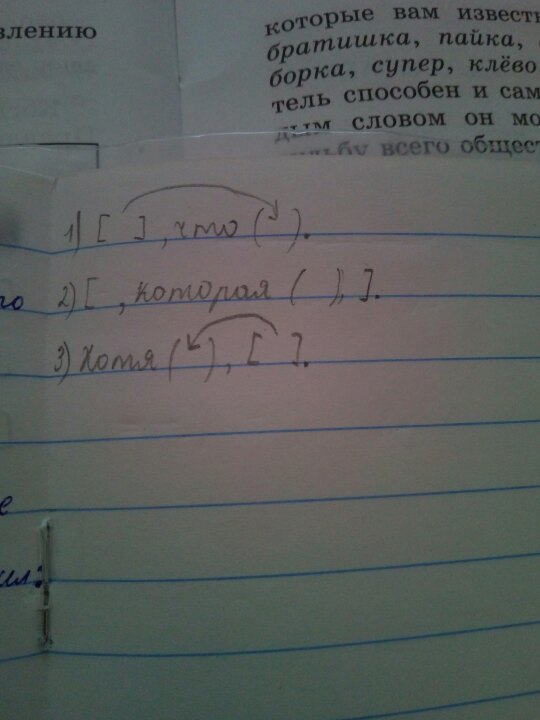 влению
которые вам извест
братишка, пайка,
борка, супер, клёво
тель способен и сам
дым словом он мо
судьбу всего общест
1) [ ], что ( ).
го 2) [ , которая ( ), ].
3) Хотя ( ), [ ].
е
ил: